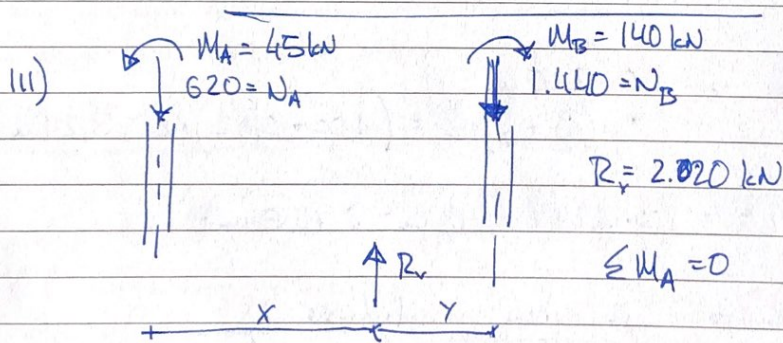 III)
M_A = 45 kN
620 = N_A
M_B = 140 kN
1.440 = N_B
R_v = 2.020 kN
R_v
Σ M_A = 0
X
Y